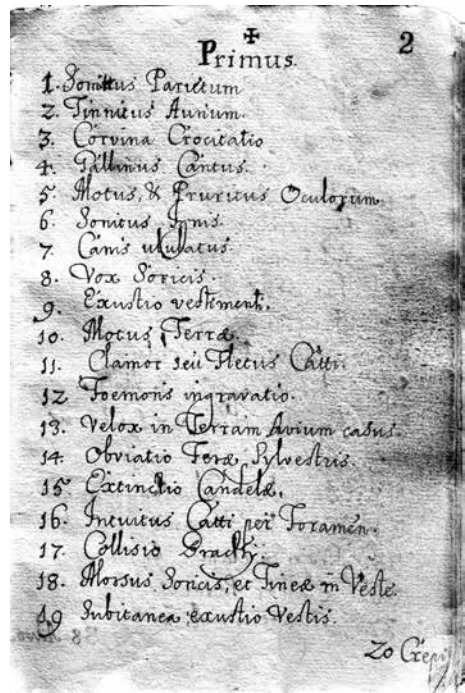 ✠
Primus. 2
1. Sonitus Parietum
2. Tinnitus Aurium.
3. Corvina Crocitatio
4. Gallinus Cantus.
5 Motus, & Pruritus Oculorum.
6. Sonitus Ignis.
7. Canis ululatus.
8. Vox Soricis.
9. Exustio vestimenti.
10. Motus Terræ.
11. Clamor seu Fletus Catti.
12 Foemoris ingravatio.
13. Velox in Terram Avium casus.
14. Obviatio Feræ Sylvestris.
15 Extinctio Candelæ.
16. Intuitus Catti per Foramen.
17. Collisio Brachij.
18. Morsus Soricis, et Tineæ in Veste.
19 Subitanea exustio Vestis.
20 Crepi